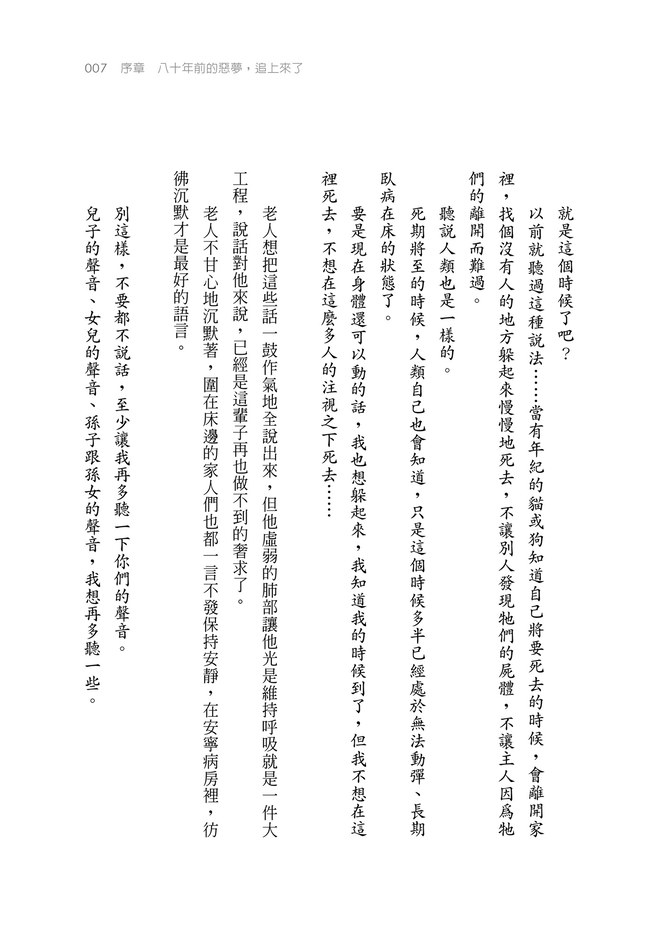 007 序章 八十年前的惡夢，追上來了
就是這個時候了吧？
以前就聽過這種說法……當有年紀的貓或狗知道自己將要死去的時候，會離開家
裡，找個沒有人的地方躲起來慢慢地死去，不讓別人發現牠們的屍體，不讓主人因為牠
們的離開而難過。
聽說人類也是一樣的。
死期將至的時候，人類自己也會知道，只是這個時候多半已經處於無法動彈、長期
臥病在床的狀態了。
要是現在身體還可以動的話，我也想躲起來，我知道我的時候到了，但我不想在這
裡死去，不想在這麼多人的注視之下死去……
老人想把這些話一鼓作氣地全說出來，但他虛弱的肺部讓他光是維持呼吸就是一件大
工程，說話對他來說，已經是這輩子再也做不到的奢求了。
老人不甘心地沉默著，圍在床邊的家人們也都一言不發保持安靜，在安寧病房裡，彷
彿沉默才是最好的語言。
別這樣，不要都不說話，至少讓我再多聽一下你們的聲音。
兒子的聲音、女兒的聲音、孫子跟孫女的聲音，我想再多聽一些。